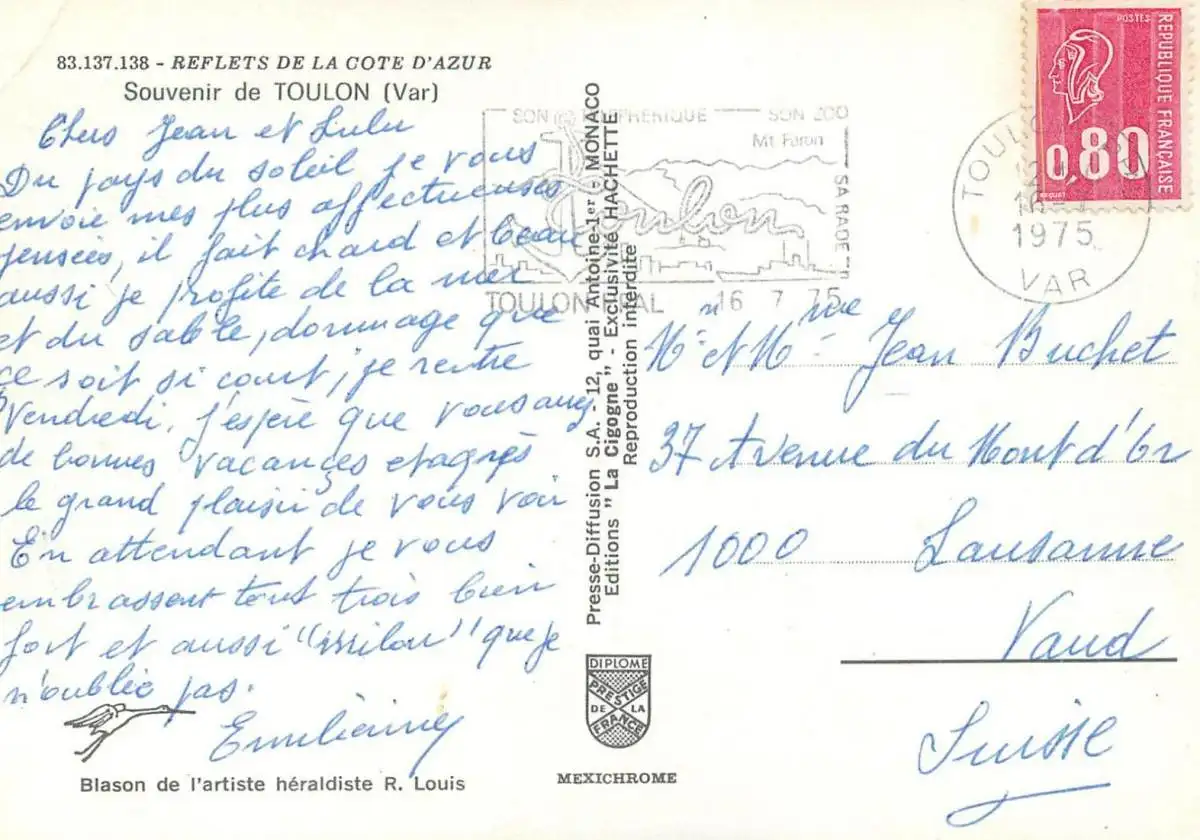 83.137.138 - REFLETS DE LA COTE D'AZUR
Souvenir de TOULON (Var)
Chers Jean et Lulu
Du pays du soleil je vous
envoie mes plus affectueuses
pensées, il fait chaud et beau
aussi je profite de la mer
et du sable, dommage que
ce soit si court, je rentre
Vendredi, j'espère que vous avez
de bonnes vacances et après
le grand plaisir de vous voir
En attendant je vous
embrassent tous trois bien
fort et aussi " " que je
n'oublie pas.
Blason de l'artiste héraldiste R. Louis
Presse-Diffusion S.A. - 12, quai Antoine-1er - MONACO
Editions " La Cigogne " - Exclusivité HACHETTE
Reproduction interdite
DIPLOME
PRESTIGE
DE LA
FRANCE
MEXICHROME
SON ZOO
Mt Faron
SA RADE
Toulon
TOULON
16 7 75
TOULON
1975
VAR
POSTES
REPUBLIQUE FRANÇAISE
0,80
Mr et Mme Jean Buchet
37 Avenue du Mont d'Or
1000 Lausanne
Vaud
Suisse